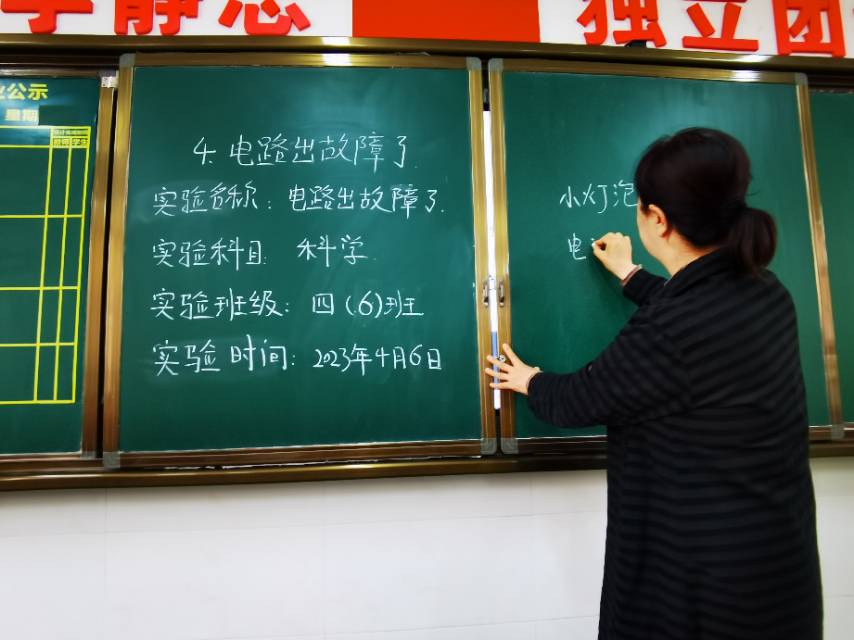 静思
独立
公示
星期
4.电路出故障了.
实验名称：电路出故障了.
实验科目: 科学.
实验班级：四（6）班
实验时间：2023年4月6日
小灯泡
电